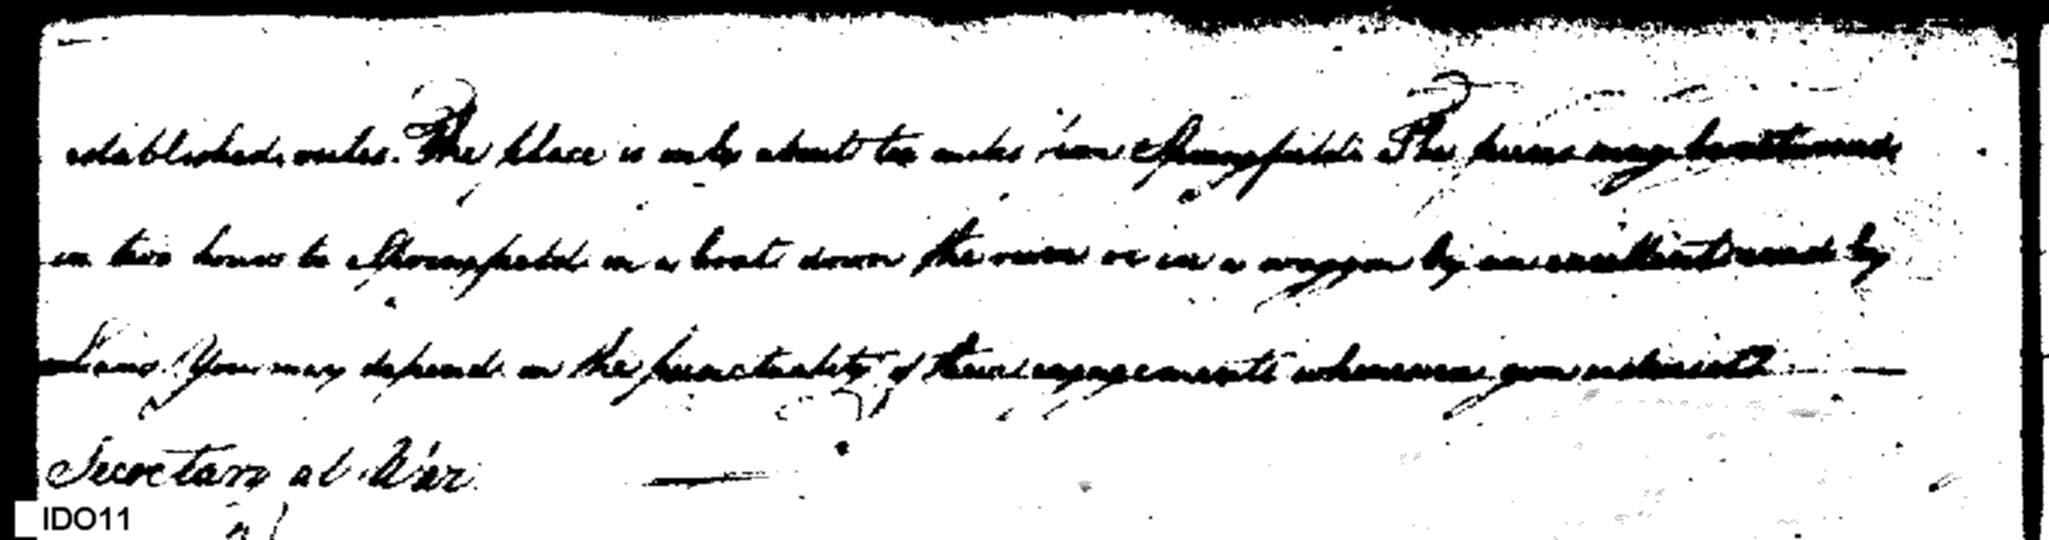 established rules. The place is only about ten miles from Springfield. The pieces may be
in two hours to Springfield in a boat down the river or in a waggon by an excellent road by
You may depend on the punctuality of their engagements whenever you
Secretary at War
IDO11